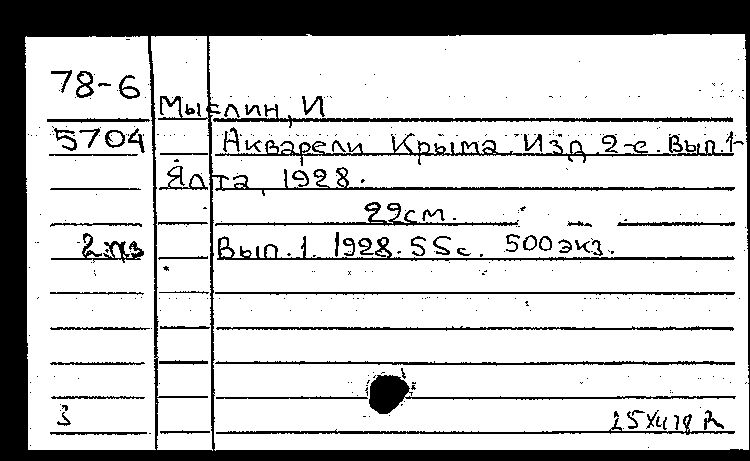 78-6
Мыслин, И
5704 Акварели Крыма. Изд 2-е. Вып.1-
Ялта, 1928.
22см.
2 экз Вып.1. 1928. 55с. 500экз.
3